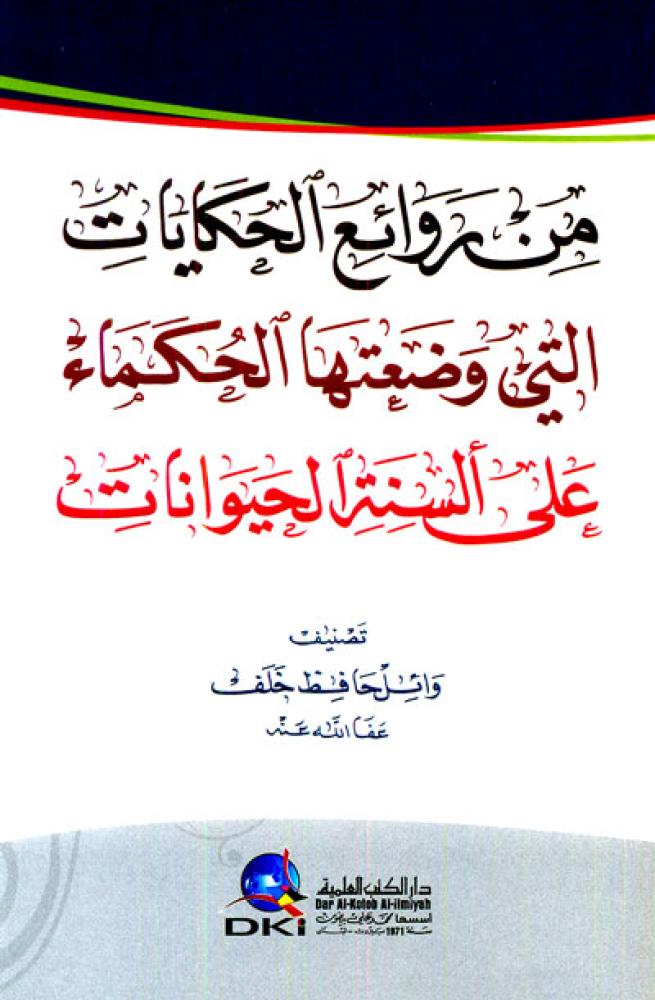 مِنْ رَوَائِعِ الْحَكَايَاتِ
الَّتِي وَضَعَتْهَا الْحُكَمَاءُ
عَلَى أَلْسِنَةِ الْحَيَوَانَاتِ
تَصْنِيف
وَائِل حَافِظ خَلَف
عَفَا اللَّه عَنْهُ
دار الكتب العلمية
Dar Al-Kotob Al-ilmiyah
أسسها محمد علي بيضون
سنة 1971 بيروت - لبنان
DKi